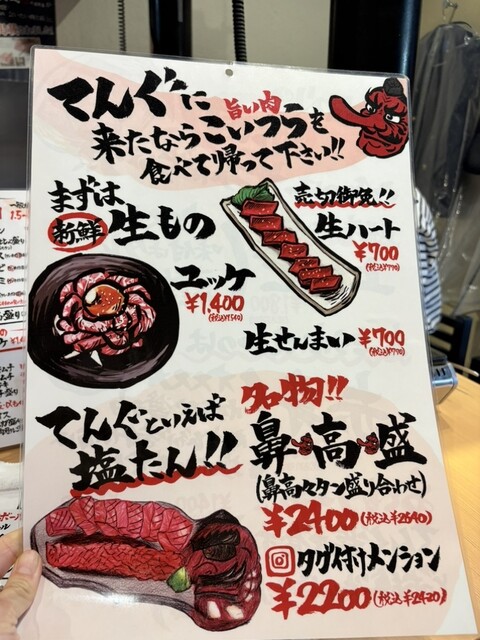 てんぐに
旨い肉
来たならこいつらを
食べて帰って下さい!!
まずは
新鮮 生もの
売切御免!!
生ハート
¥700
(税込¥770)
ユッケ
¥1,400
(税込¥1540)
生せんまい ¥700
(税込¥770)
てんぐといえば
塩たん!!
名物!!
鼻高盛
(鼻高々タン盛り合わせ)
¥2400(税込¥2640)
タグ付けメンション
¥2200(税込¥2420)